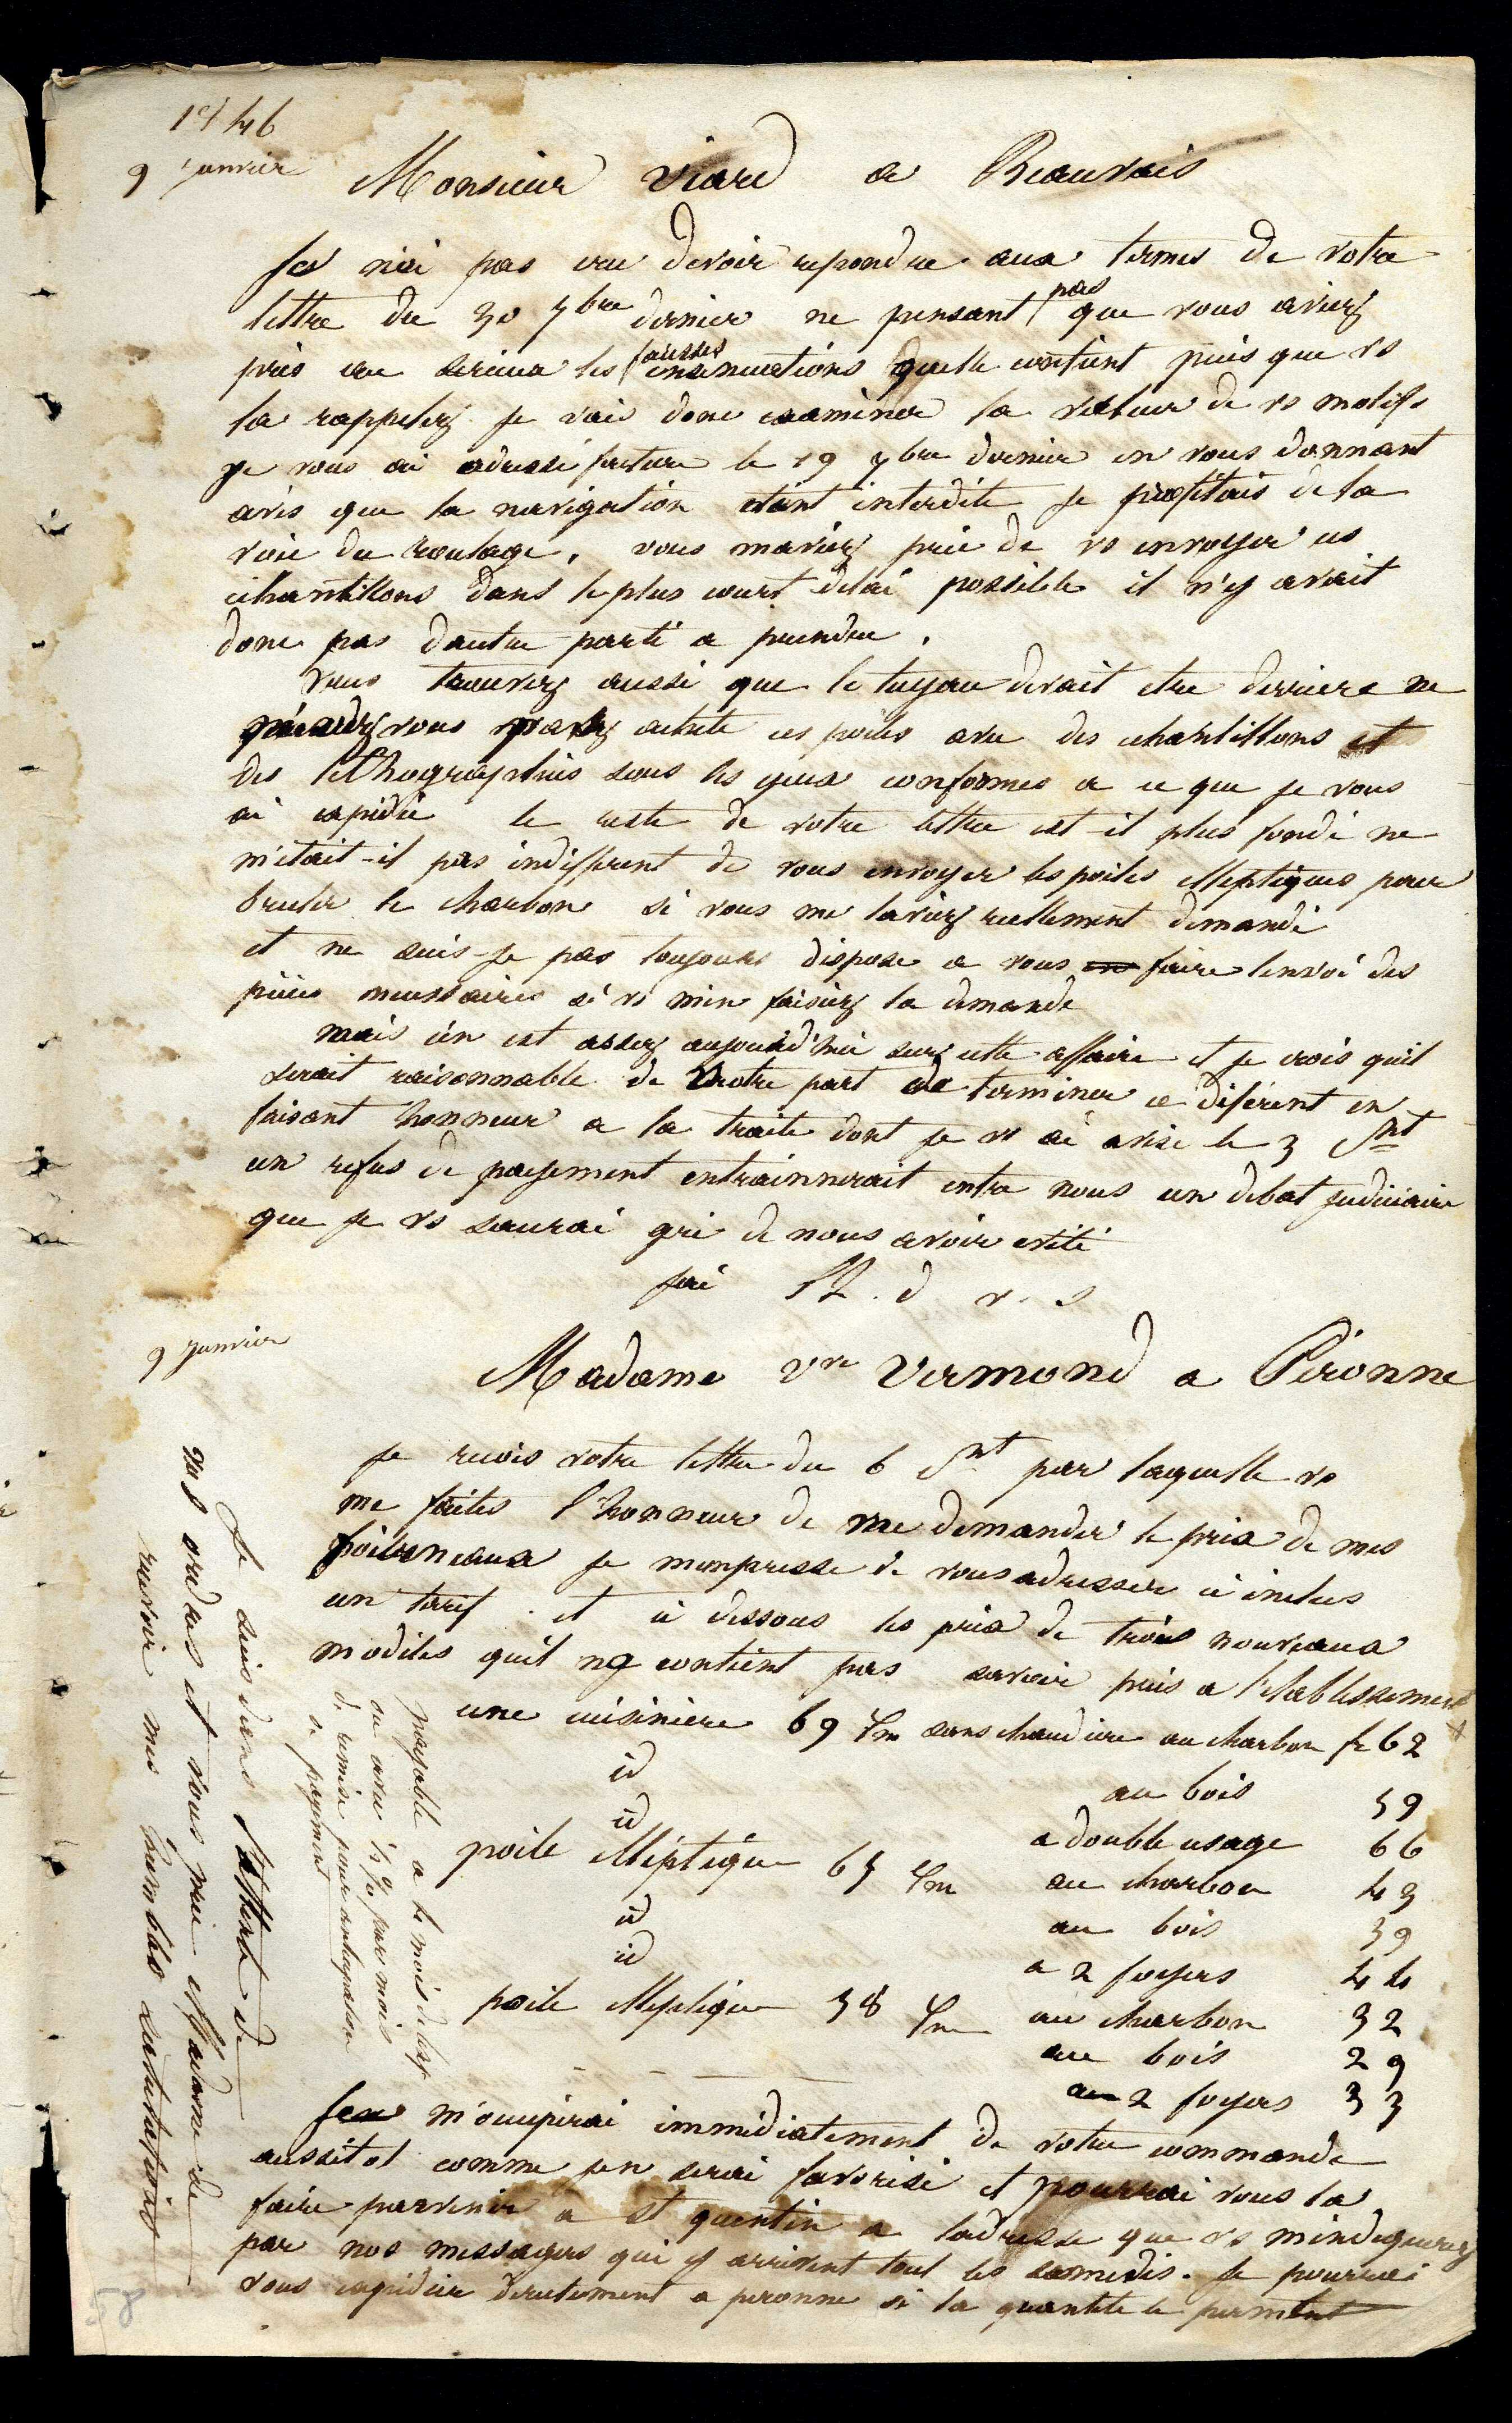 1846
9 janvier
Monsieur viard a Beauvais
Je n'ai pas cru devoir repondre aux termes de votre
lettre du 30 7bre dernier ne pensant pas que vous aviez
pris au serieux les fausses insinuations quelle contient puis que vs
la rappelez je vais donc examiner la valeur de vs motifs
je vous ai adressé facture le 19 7bre dernier en vous donnant
avis que la navigation etant interdite je profitais de la
voie du roulage. vous maviez prié de vs envoyer ces
echantillons dans le plus court delai possible il n'y avait
donc pas dautre parti a prendre.
vous trouvez aussi que le tuyau devait etre derriere ne
vous avez acheté ces poeles avec des echantillons et
des lithographies sous les yeux conformes a ce que je vous
ai expédié le reste de votre lettre est-il plus fondé ne
m'etait-il pas indifferent de vous envoyer les poiles elleptiques pour
bruler le charbon si vous me laviez reellement demandé
et ne suis-je pas toujours disposé a vous en faire lenvoi des
pièces necessaires si vs m'en faisiez la demande
mais c'en est assez aujourd'hui sur cette affaire et je crois quil
serait raisonnable de votre part de terminer ce diférent en
faisant honneur a la traite dont je vs ai avisé le 3 Ct
un refus de payement entrainnerait entre nous un debat judiciaire
que je vs saurai gré de nous avoir evité
jai l'h. d v. s
9 janvier
Madame vve Vermond a Péronne
je recois votre lettre du 6 Ct par laquelle vs
me faites l'honneur de me demander le prix de mes
fourneaux je mempresse de vous adresser ci inclus
un tarif. et ci dessous les prix de trois nouveaux
modeles quil ny contient pas savoir pris a l'etablissement
une cuisiniere 69 c/m sans chaudiere au charbon fr 62
id au bois 59
id a double usage 66
poile elleptique 65 c/m au charbon 43
id au bois 39
id a 2 foyers 44
poile elleptique 58 c/m au charbon 32
au bois 29
a 2 foyers 33
Je m'ocuperai immédiatement de votre commande
aussitot comme jen serai favorisé et pourrai vous la
faire parvenir a st quentin a ladresse que vs mindiquerez
par nos messagers qui y arrivent tout les samedis. Je pourrai
vous expédier directement a peronne si la quantite le permet
payable a 4 mois de
ou avec ½ % par mois
de remise pour anticipation
de payement
Je suis dans l'attente de
vos ordres et vous prie Madame de
recevoir mes humbles salutations
58